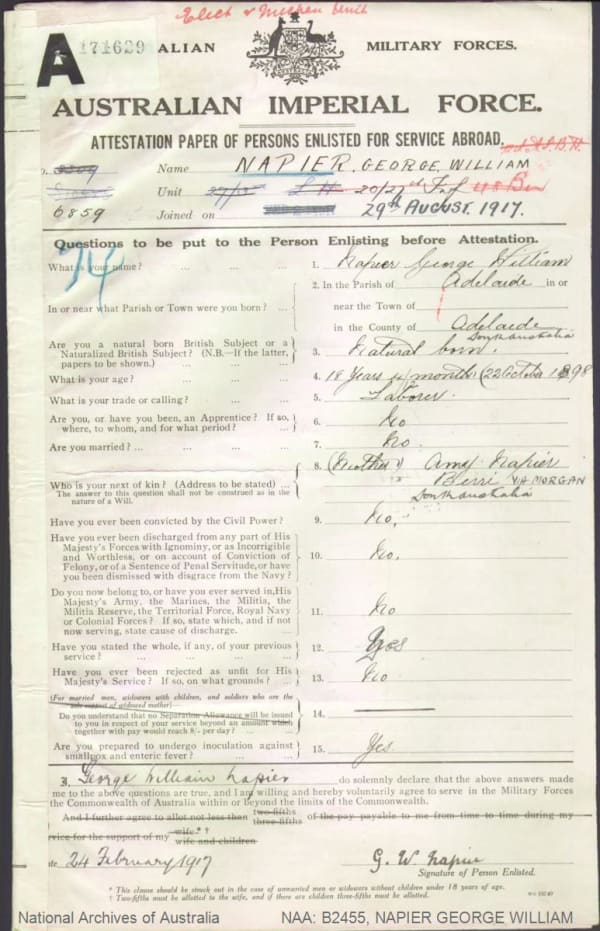 Elect & Mechan
A 171629
ALIAN MILITARY FORCES.
AUSTRALIAN IMPERIAL FORCE.
ATTESTATION PAPER OF PERSONS ENLISTED FOR SERVICE ABROAD.
Name NAPIER, GEORGE WILLIAM
Unit 27/ 20/27th Inf 48 Bn
6859 Joined on 29th AUGUST. 1917.
Questions to be put to the Person Enlisting before Attestation.
74
What is your name? ... 1. Napier George William
In or near what Parish or Town were you born? ... 2. In the Parish of Adelaide in or
near the Town of
in the County of Adelaide
South Australia
Are you a natural born British Subject or a
Naturalized British Subject? (N.B.—If the latter,
papers to be shown.) ... 3. Natural born.
What is your age? ... 4. 18 Years 4 months (22 October 1898
What is your trade or calling? ... 5. Laborer.
Are you, or have you been, an Apprentice? If so,
where, to whom, and for what period? ... 6. No
Are you married? ... 7. No.
Who is your next of kin? (Address to be stated) ... 8. (Mother) Amy Napier
Berri VIA MORGAN
South Australia
The answer to this question shall not be construed as in the
nature of a Will.
Have you ever been convicted by the Civil Power? 9. No.
Have you ever been discharged from any part of His
Majesty's Forces with Ignominy, or as Incorrigible
and Worthless, or on account of Conviction of
Felony, or of a Sentence of Penal Servitude, or have
you been dismissed with disgrace from the Navy? 10. No.
Do you now belong to, or have you ever served in, His
Majesty's Army, the Marines, the Militia, the
Militia Reserve, the Territorial Force, Royal Navy
or Colonial Forces? If so, state which, and if not
now serving, state cause of discharge. 11. No
Have you stated the whole, if any, of your previous
service? ... 12. Yes
Have you ever been rejected as unfit for His
Majesty's Service? If so, on what grounds? ... 13. No
(For married men, widowers with children, and soldiers who are the
sole support of widowed mother)—
Do you understand that no Separation Allowance will be issued
to you in respect of your service beyond an amount which
together with pay would reach 8/- per day? ... 14.
Are you prepared to undergo inoculation against
smallpox and enteric fever? ... 15. Yes
I, George William Napier do solemnly declare that the above answers made
me to the above questions are true, and I am willing and hereby voluntarily agree to serve in the Military Forces
the Commonwealth of Australia within or beyond the limits of the Commonwealth.
And I further agree to allot not less than two-fifths three-fifths of the pay payable to me from time to time during my
rvice for the support of my wife.* † wife and children
te 24 February 1917 G. W. Napier
Signature of Person Enlisted.
* This clause should be struck out in the case of unmarried men or widowers without children under 18 years of age.
† Two-fifths must be allotted to the wife, and if there are children three-fifths must be allotted.
National Archives of Australia NAA: B2455, NAPIER GEORGE WILLIAM